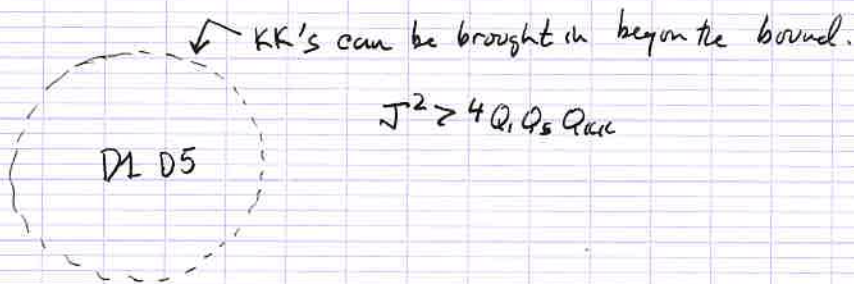 KK's can be brought in beyon the bound.
J² > 4 Q₁ Q₅ Q_KK
D1 D5